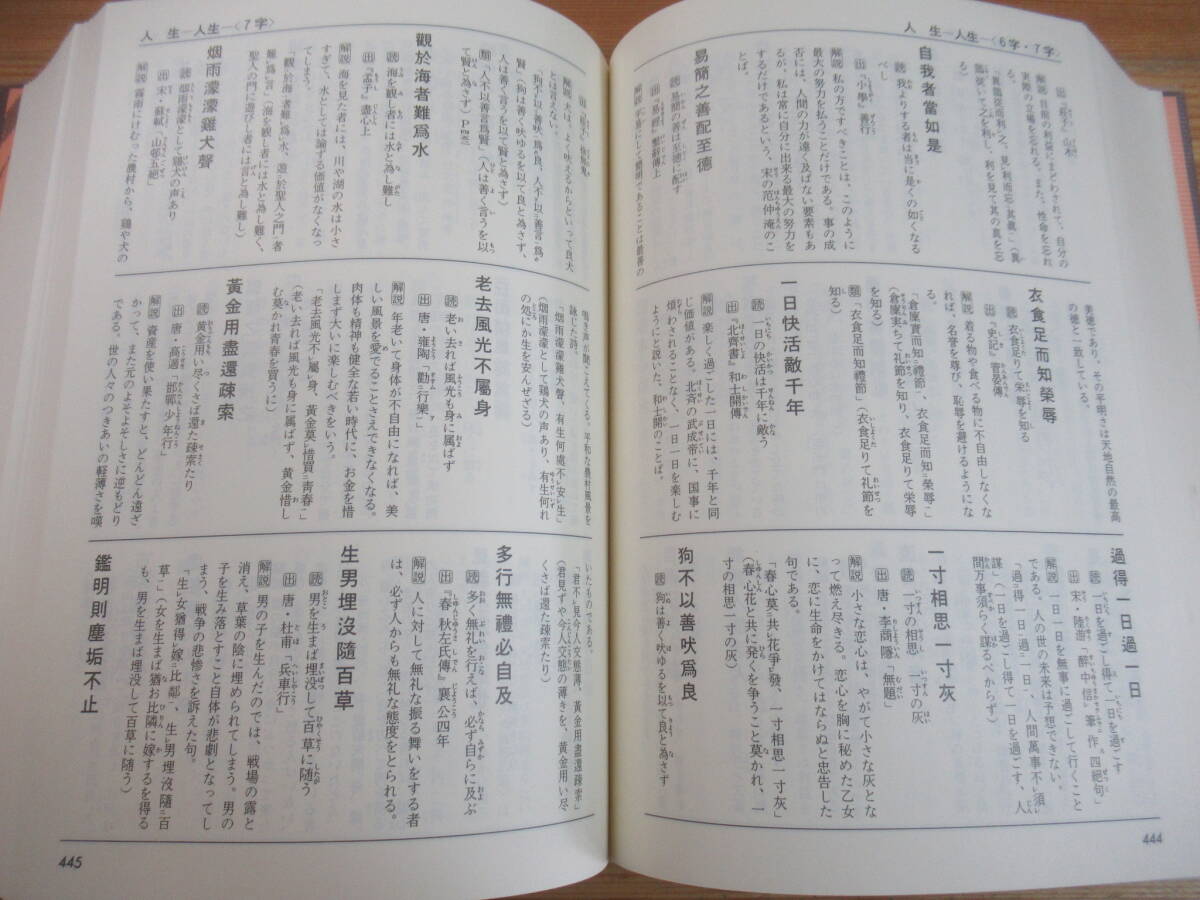 人 生―人生―〈6字・7字〉
解説 目前の利益にまどわされて、自分の
実際の立場を忘れる。また、性命を忘れ
る。
自我者當如是
読 我よりする者は当に是くの如くなる
べし
出 『小學』善行
解説 私の方ですべきことは、このように
最大の努力を払うことだけである。事の成
否には、人間の力が遠く及ばない要素もあ
るが、私は常に自分に出来る最大の努力を
するだけであるという、宋の范仲淹のこ
とば。
易簡之善配至德
読 易簡の善は至徳に配す
出 『易經』繫辭傳上
美徳であり、その平明さは天地自然の最高
の徳と一致している。
衣食足而知榮辱
読 衣食足りて栄辱を知る
出 『史記』管晏傳
解説 着る物や食べる物に不自由しなくな
れば、名誉を尊び、恥辱を避けるようにな
る。
「倉廩實而知禮節、衣食足而知榮辱」
(倉廩実ちて礼節を知り、衣食足りて栄辱
を知る)
類 「衣食足而知禮節」(衣食足りて礼節を
知る)
一日快活敵千年
読 一日の快活は千年に敵う
出 『北齊書』和士開傳
解説 楽しく過ごした一日には、千年と同
じ価値がある。北斉の武成帝に、国事に
煩わされることなく、一日一日を楽しむ
ようにと説いた、和士開のことば。
過得一日過一日
読 一日を過ごし得て一日を過ごす
出 宋・陸游「醉中信筆作四絕句」
解説 一日一日を無事に過ごして行くこと
である。人の世の未来は予想できない。
「過得一日過一日、人間萬事不須
謀」(一日を過ごし得て一日を過ごす、人
間万事須らく謀るべからず)
一寸相思一寸灰
読 一寸の相思 一寸の灰
出 唐・李商隱「無題」
解説 小さな恋心は、やがて小さな灰とな
って燃え尽きる。恋心を胸に秘めた乙女
に、恋に生命をかけてはならぬと忠告した
句である。
「春心莫共花爭發、一寸相思一寸灰」
(春心花と共に発くを争うこと莫かれ、一
寸の相思一寸の灰)
狗不以善吠爲良
読 狗は善く吠ゆるを以て良と為さず
444
人 生―人生―〈7字〉
解説 犬は、よく吠えるからといって良犬
とは言えない。
「狗不以善吠爲良、人不以善言爲
賢」(狗は善く吠ゆるを以て良と為さず、
人は善く言うを以て賢と為さず)
類 「人不以善言爲賢」(人は善く言うを以
て賢と為さず)
觀於海者難爲水
読 海を観し者には水と為し難し
出 『孟子』盡心上
解説 海を見た者には、川や湖の水は小さ
すぎて、水としては論する価値がなくなっ
てしまう。
「觀於海者難爲水、遊於聖人之門者
難爲言」(海を観し者には水と為し難く、
聖人の門に遊びし者には言と為し難し)
烟雨濛濛雞犬聲
読 烟雨濛濛として鶏犬の声あり
出 宋・蘇軾「山邨五絕」
解説 霧雨にけむった農村から、鶏や犬の
鳴き声が聞こえてくる。平和な農村風景を
詠じた詩。
「烟雨濛濛雞犬聲、有生何處不安生」
(烟雨濛濛として鶏犬の声あり、有生何れ
の処にか生を安んぜざる)
老去風光不屬身
読 老い去れば風光も身に属ばず
出 唐・雍陶「勸行樂」
解説 年老いて身体が不自由になれば、美
しい風景を愛でることさえできなくなる。
肉体も精神も健全な若い時代に、お金を惜
しまず大いに楽しむべきをいう。
「老去風光不屬身、黃金莫惜買靑春」
(老い去れば風光も身に属ばず、黄金惜し
む莫かれ青春を買うに)
黃金用盡還疎索
読 黄金用い尽くさば還た疎索たり
出 唐・高適「邯鄲少年行」
解説 資産を使い果たすと、どんどん遠ざ
かって、また元のよそよそしさに逆もどり
である。世の人々のつきあいの軽薄さを嘆
いたものである。
「君不見今人交態薄、黃金用盡還疎索」
(君見ずや今人交態の薄きを、黄金用い尽
くさば還た疎索たり)
多行無禮必自及
読 多く無礼を行なえば、必ず自らに及ぶ
出 『春秋左氏傳』襄公四年
解説 人に対して無礼な振る舞いをする者
は、必ず人からも無礼な態度をとられる。
生男埋沒隨百草
読 男を生まば埋没して百草に随う
出 唐・杜甫「兵車行」
解説 男の子を生んだのでは、戦場の露と
消え、草葉の陰に埋められてしまう。男の
子を生み落とすこと自体が悲劇となってし
まう、戦争の悲惨さを訴えた句。
「生女猶得嫁比鄰、生男埋沒隨百
草」(女を生まば猶お比隣に嫁するを得る
も、男を生まば埋没して百草に随う)
鑑明則塵垢不止
445